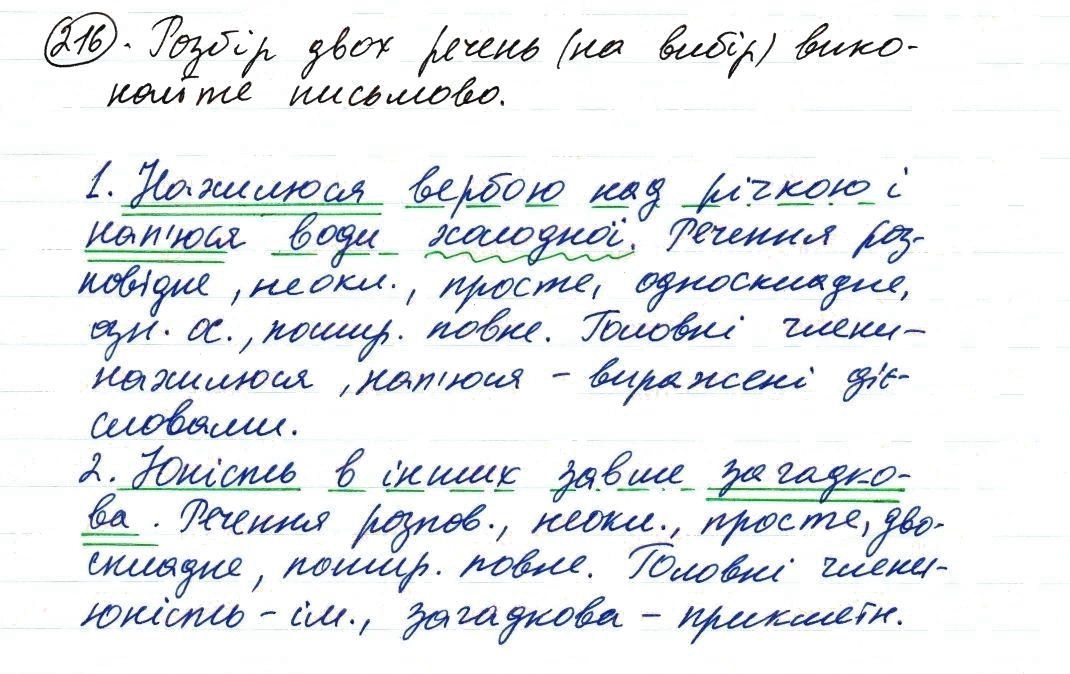 216. Розбір двох речень (на вибір) вико-
найте письмово.
1. Нахилюся вербою над річкою і
нап'юся води холодної. Речення роз-
повідне, неокл., просте, односкладне,
озн. ос., пошир. повне. Головні члени -
нахилюся, нап'юся - виражені діє-
словами.
2. Юність в інших завше загадко-
ва. Речення розпов., неокл., просте, дво-
складне, пошир. повне. Головні члени -
юність - ім., загадкова - прикметн.